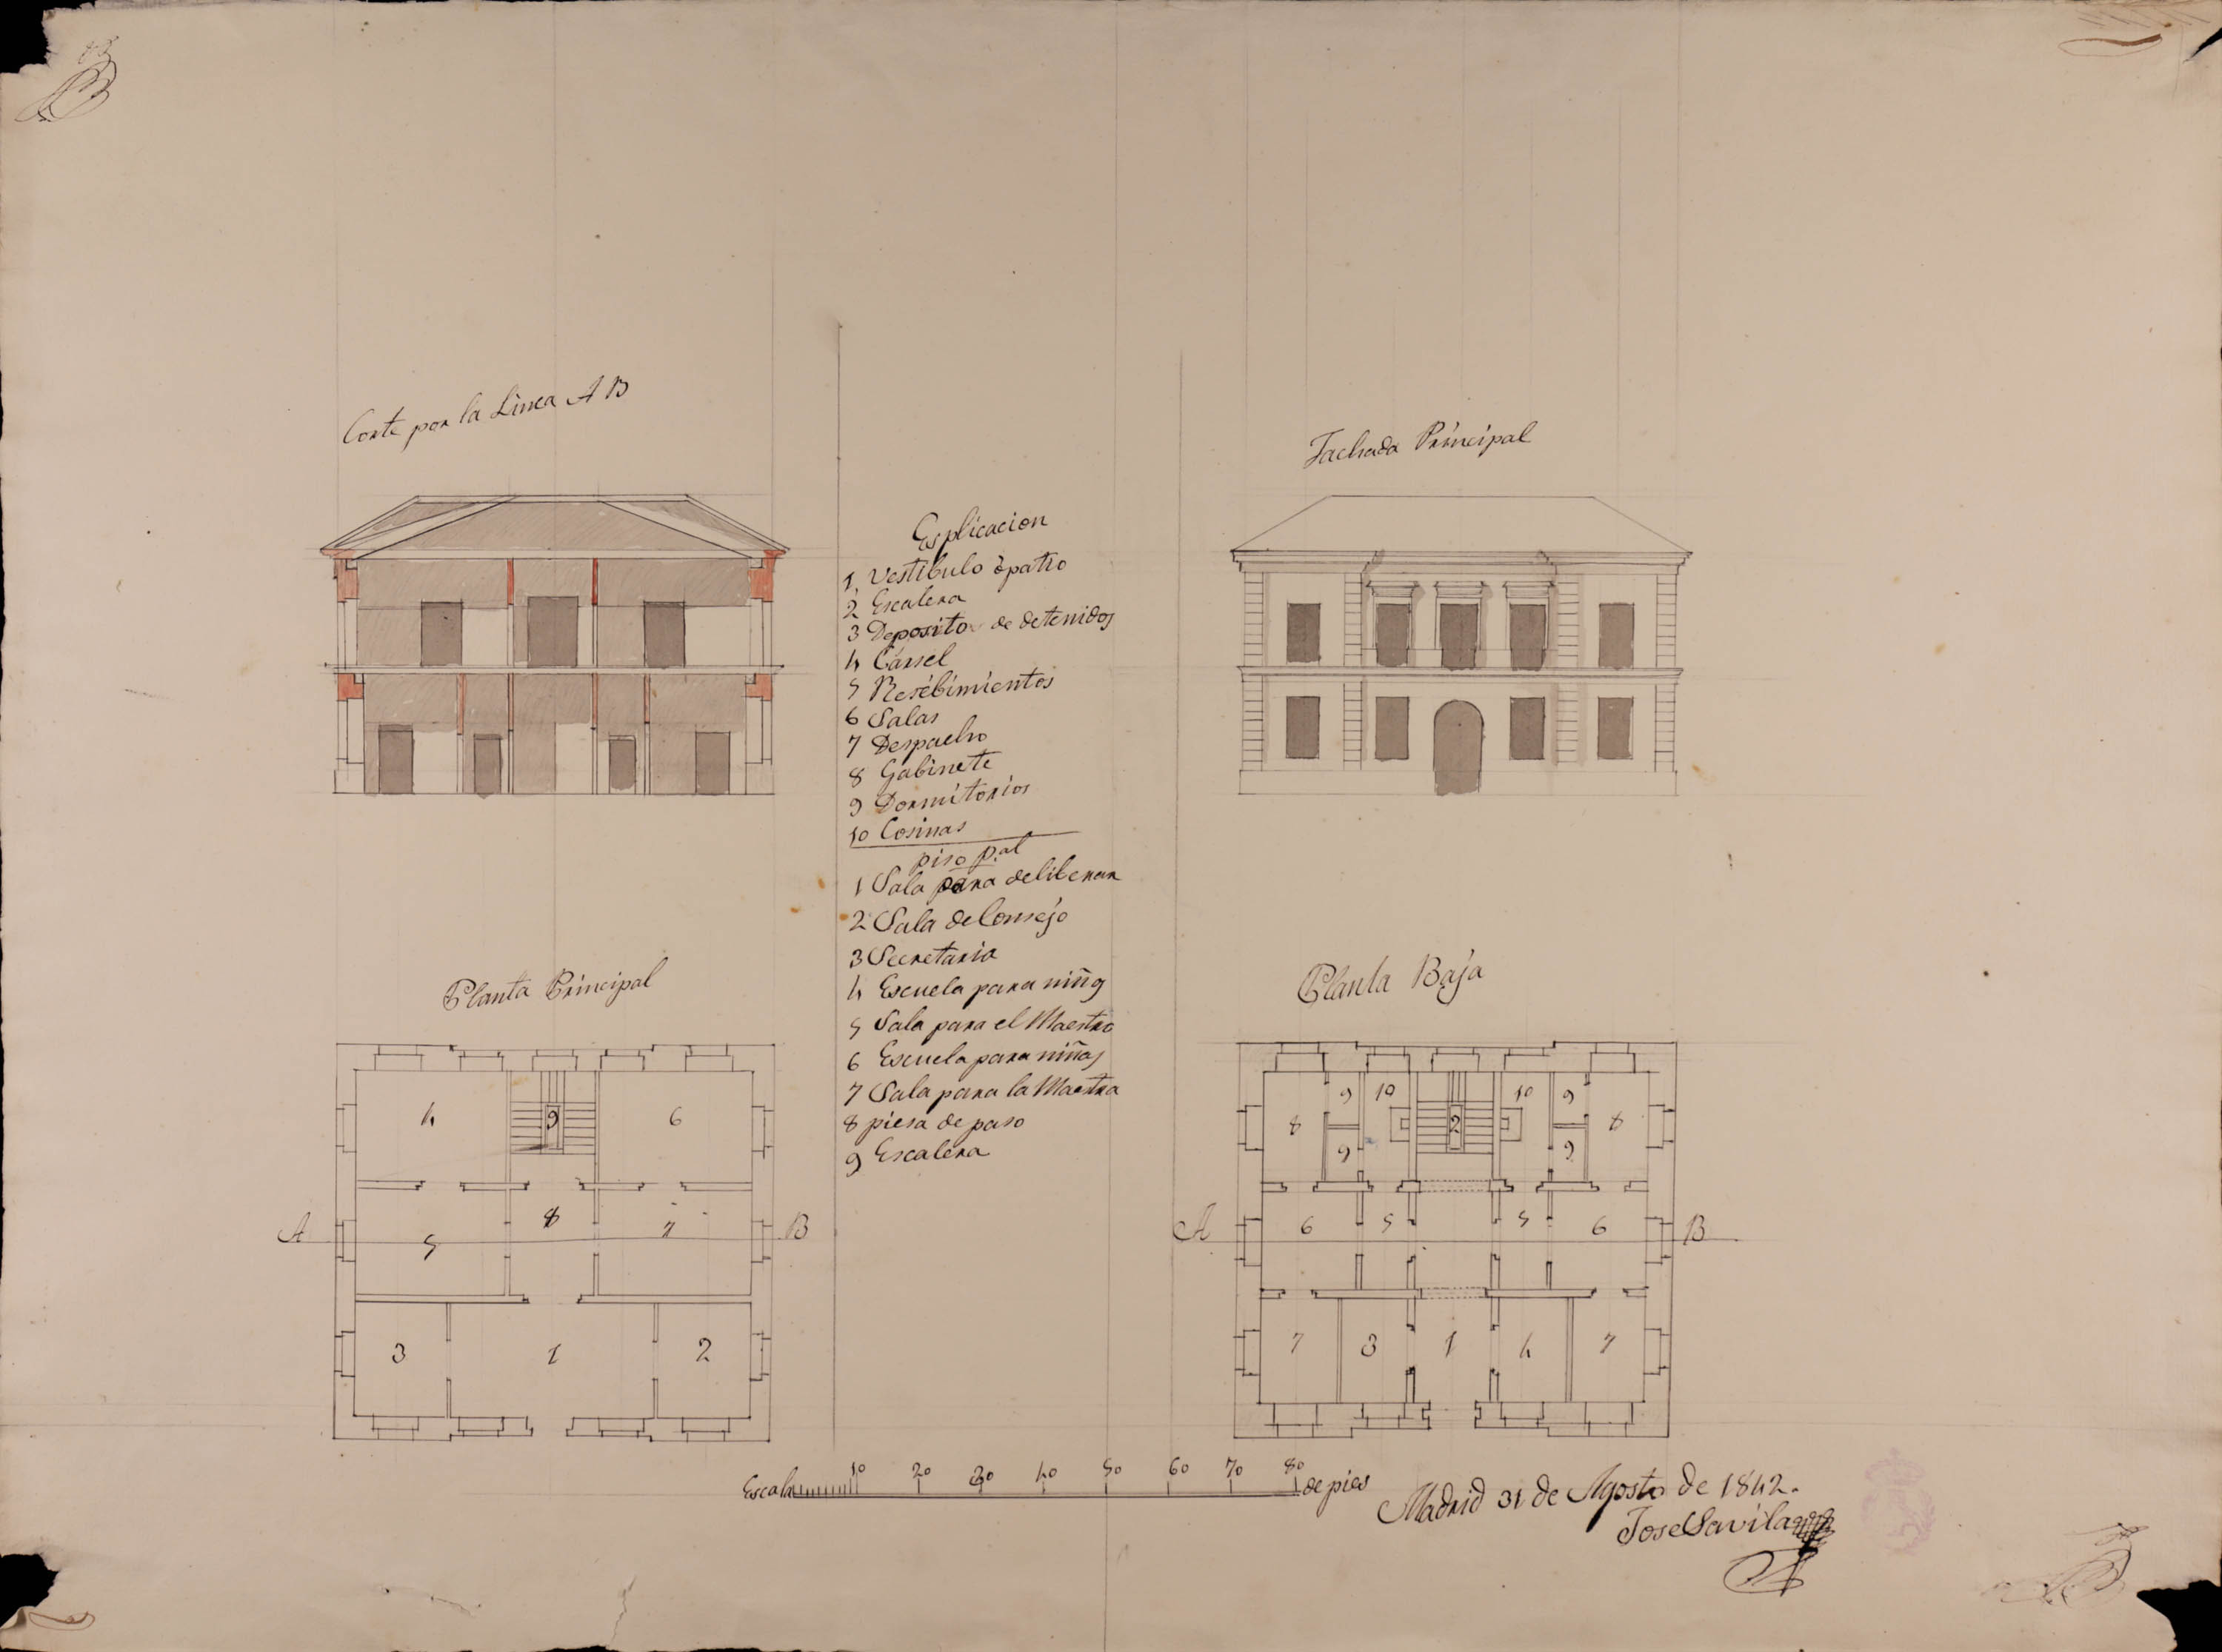 Corte por la Linea A B
Fachada Principal
Esplicacion
1 Vestibulo ó patio
2 Escalera
3 Deposito de detenidos
4 Carsel
5 Resébimientos
6 Salas
7 Despacho
8 Gabinete
9 Dormitorios
10 Cosinas
piso p.al
1 Sala para deliberar
2 Sala de Consejo
3 Secretaria
4 Escuela para niño
5 Sala para el Maestro
6 Escuela para niñas
7 Sala para la Maestra
8 piesa de paso
9 Escalera
Planta Principal
4 9 6
A 5 8 7 B
3 1 2
Planta Baja
8 9 10 2 10 9 8
9 9
A 6 5 5 6 B
7 3 1 4 7
Escala 10 20 30 40 50 60 70 80 de pies
Madrid 31 de Agosto de 1842.
Jose Savila